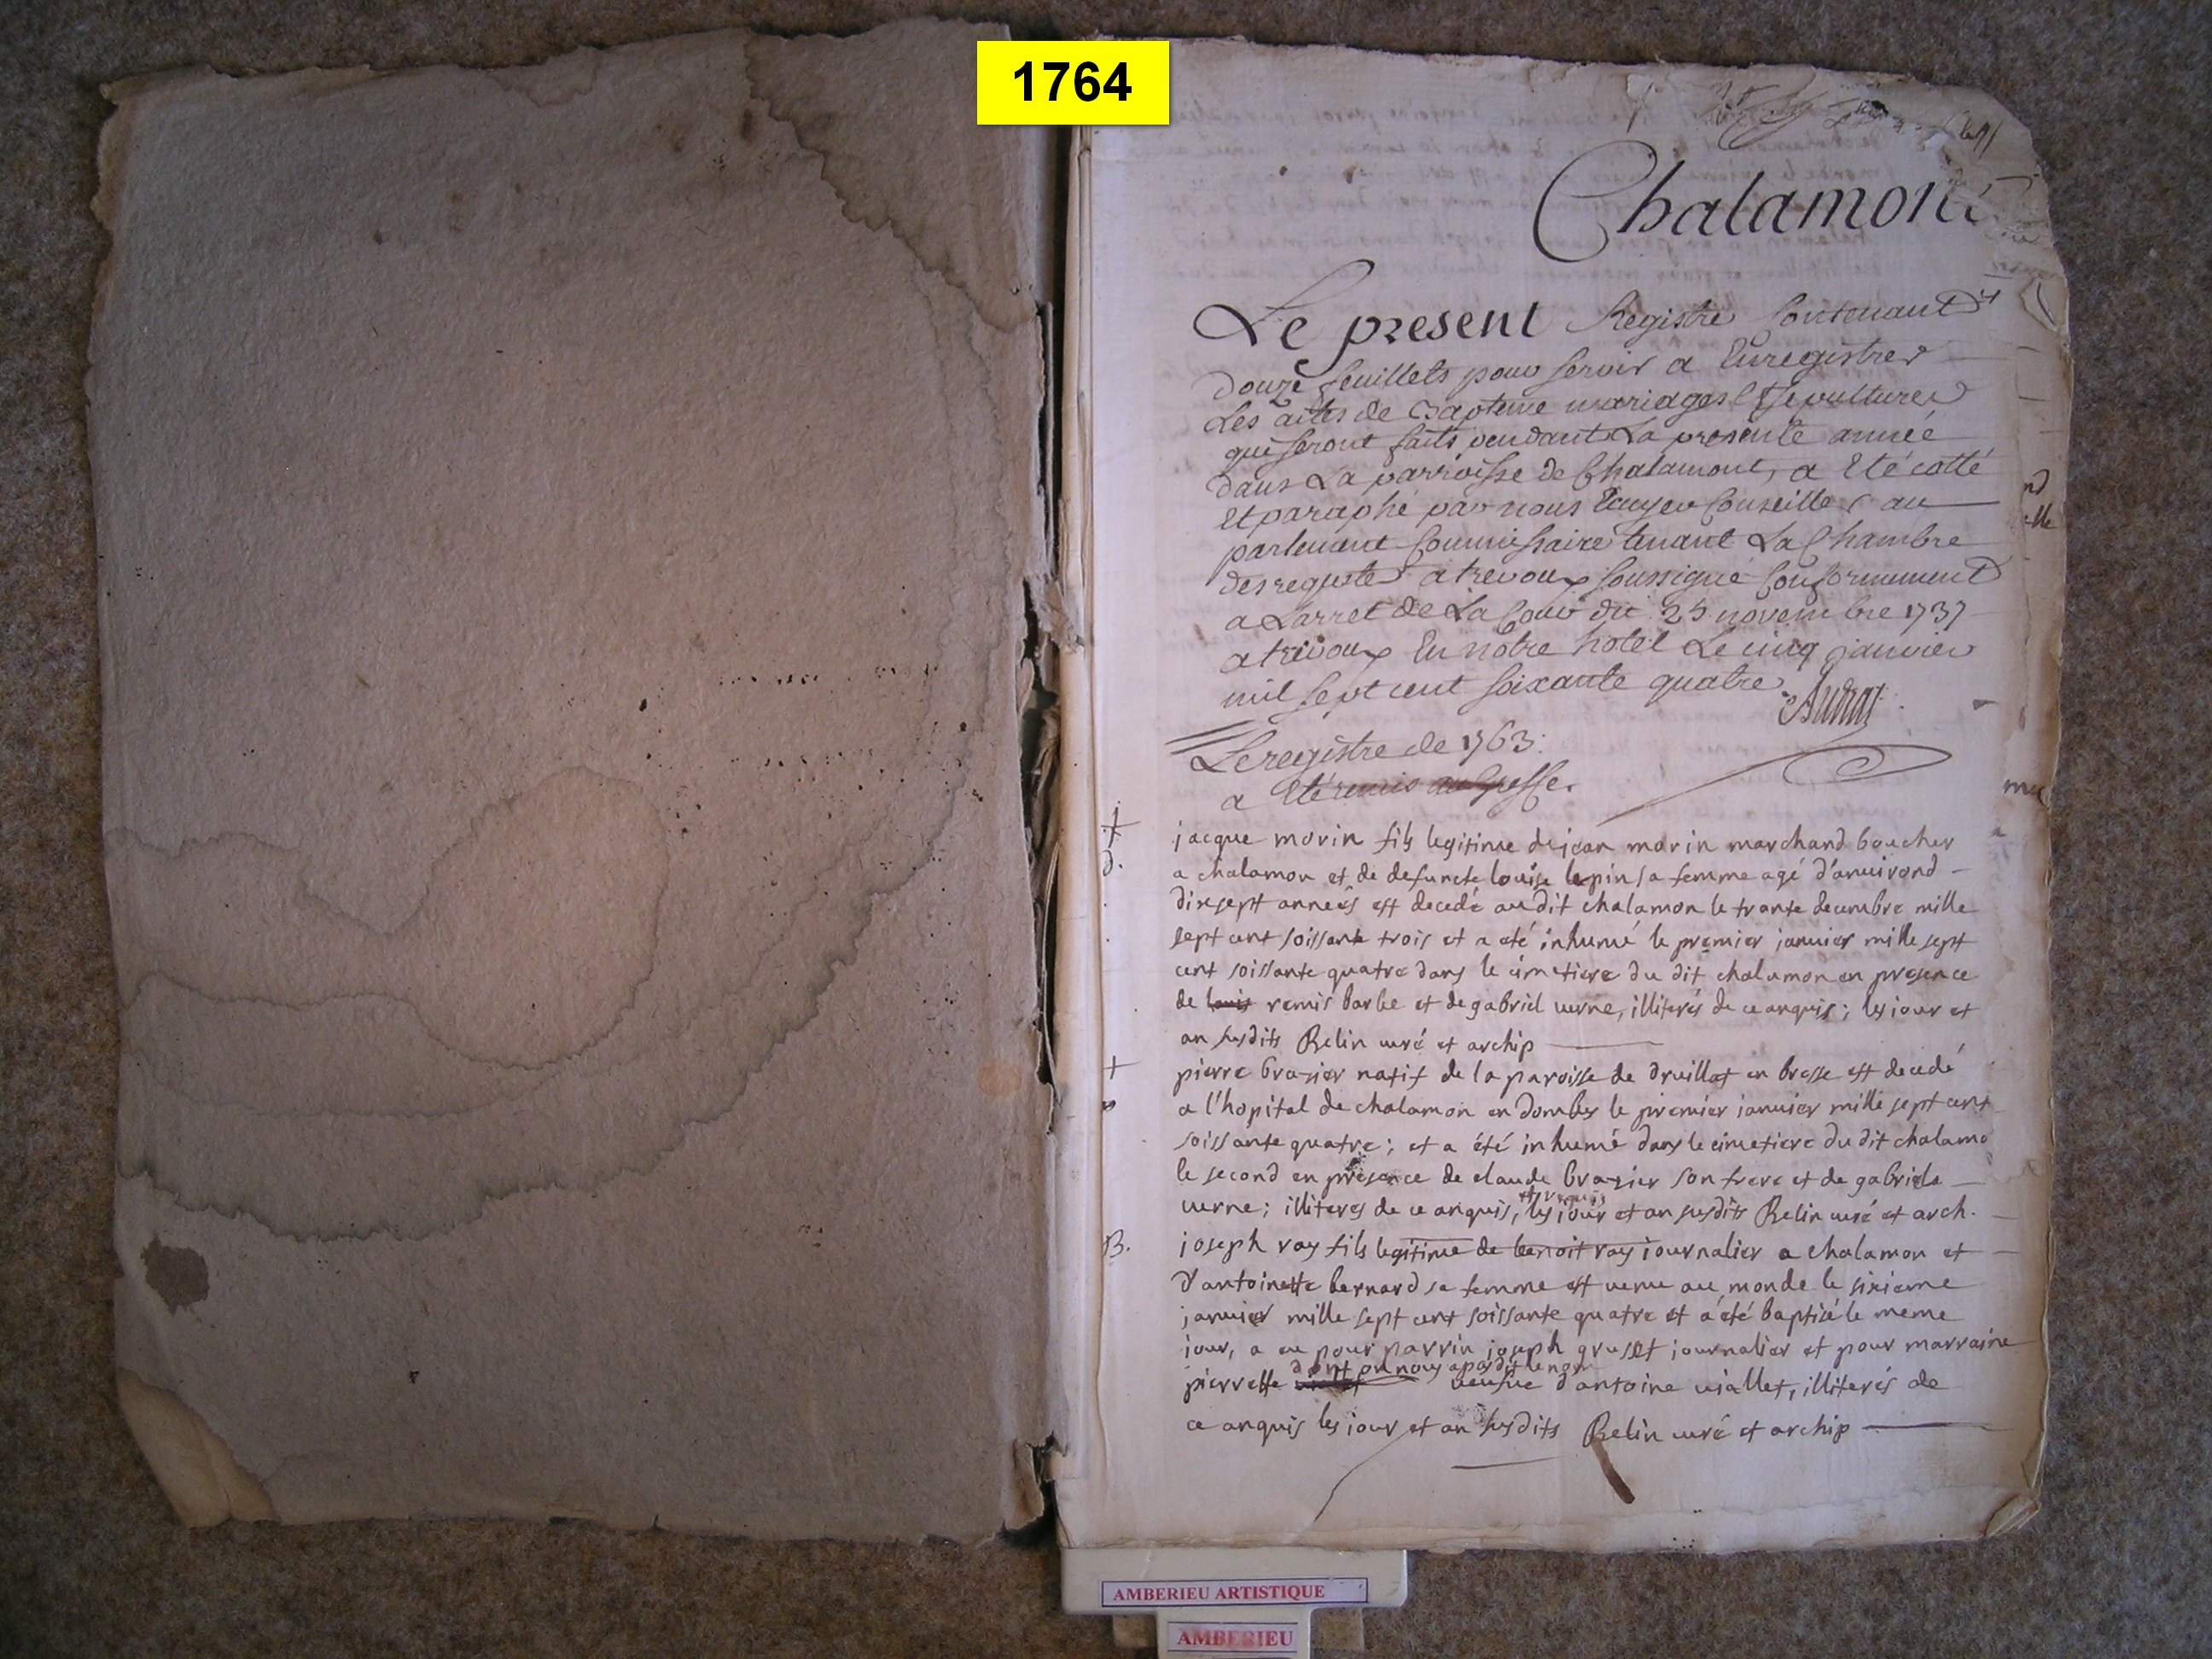 1764
Chalamont
Le present Registre Contenant
douze feuillets pour servir a Enregistrer
Les actes de Bapteme mariages Et Sepultures
qui seront faits pendant La presente année
dans La parroisse de Chalamont, a Eté cotté
Et paraphé par nous Ecuyer Conseiller au
parlement Commissaire tenant La Chambre
des requetes a trevoux soussigné Conformement
a Larret de La Cour du 25 novembre 1737
a trevoux En notre hotel Le cinq janvier
mil sept cent soixante quatre
Le registre de 1763.
a Eté remis au Greffe.
jacque morin fils legitime de jean morin marchand boucher
a chalamon et de defuncte louise lepin sa femme agé d'anuirond
dixsept anneés est decedé audit chalamon le trante decembre mille
sept cent soissante trois et a eté inhumé le premier januier mille sept
cent soissante quatre dans le cimetiere du dit chalamon en presence
de louis remis barbe et de gabriel uerne, illiterés de ce anquis; les jour et
an susdits Relin curé et archip
pierre brazier natif de la paroisse de druillat en bresse est decedé
a l'hopital de chalamon en dombes le premier januier mille sept cent
soissante quatre; et a été inhumé dans le cimetiere du dit chalamo
le second en presence de claude brazier son frere et de gabriele
uerne; illiteres de ce anquis, les jour et an susdits Relin curé et arch.
B.
joseph ray fils legitime de benoit ray journalier a chalamon et
d'antoinette bernard sa femme est uenu au monde le sixieme
januier mille sept cent soissante quatre et a été baptisé le meme
jour, a eu pour parrin joseph gruset journalier et pour marraine
dont on nous a pas dit le nom
pierrette ueufue d'antoine uiallet, illiterés de
ce anquis les jour et an susdits Relin curé et archip
AMBERIEU ARTISTIQUE
AMBERIEU